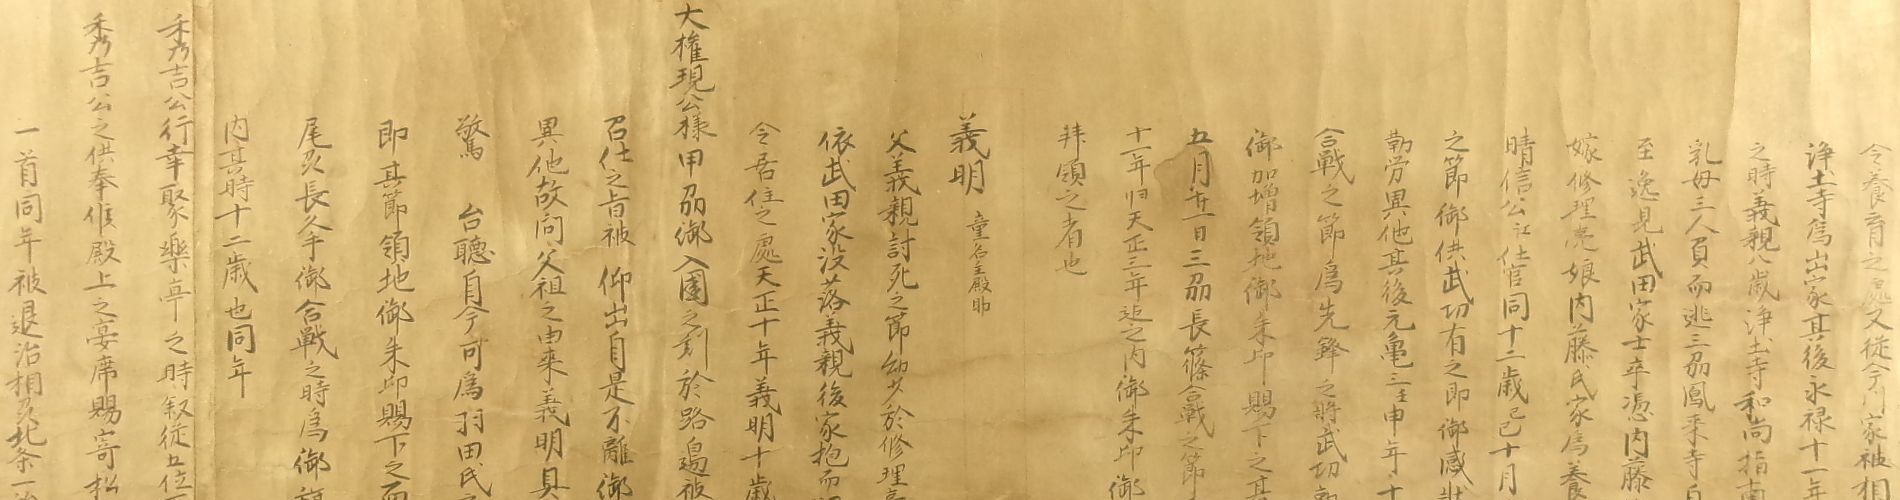 令養育之處又従今川家被相
浄土寺為出家其後永禄十一年
之時義親八歳浄土寺和尚指南
乳母三人負而逃三刕鳳来寺
至逸見武田家士卒憑内藤
嫁修理亮娘内藤氏家為養
晴信公江仕官同十二歳己巳十月
之節御供武功有之即御感状
勤労異他其後元亀三壬申年十
合戦之節為先鋒之將武切
御加増領地御朱印賜下之其
五月廿一日三刕長篠合戦之節
十一年归天正三年迠之内御朱印御
拝領之者也
義明 童名主殿助
父義親討死之節幼少於修理亮
依武田家没落義親後家抱而
令居住之處天正十年義明十歳
大権現公様甲刕御入國之刻於路邉被
召仕之旨被 仰出自是不離御
異他故問父祖之由来義明具
驚 台聴自今可為羽田氏
即其節領地御朱印賜下之而
尾刕長久手御合戦之時為御旗
内其時十二歳也同年
秀吉公行幸聚樂亭之時叙従五位下
秀吉公之供奉候殿上之宴席賜寄松
一首同年被退治相刕北条一